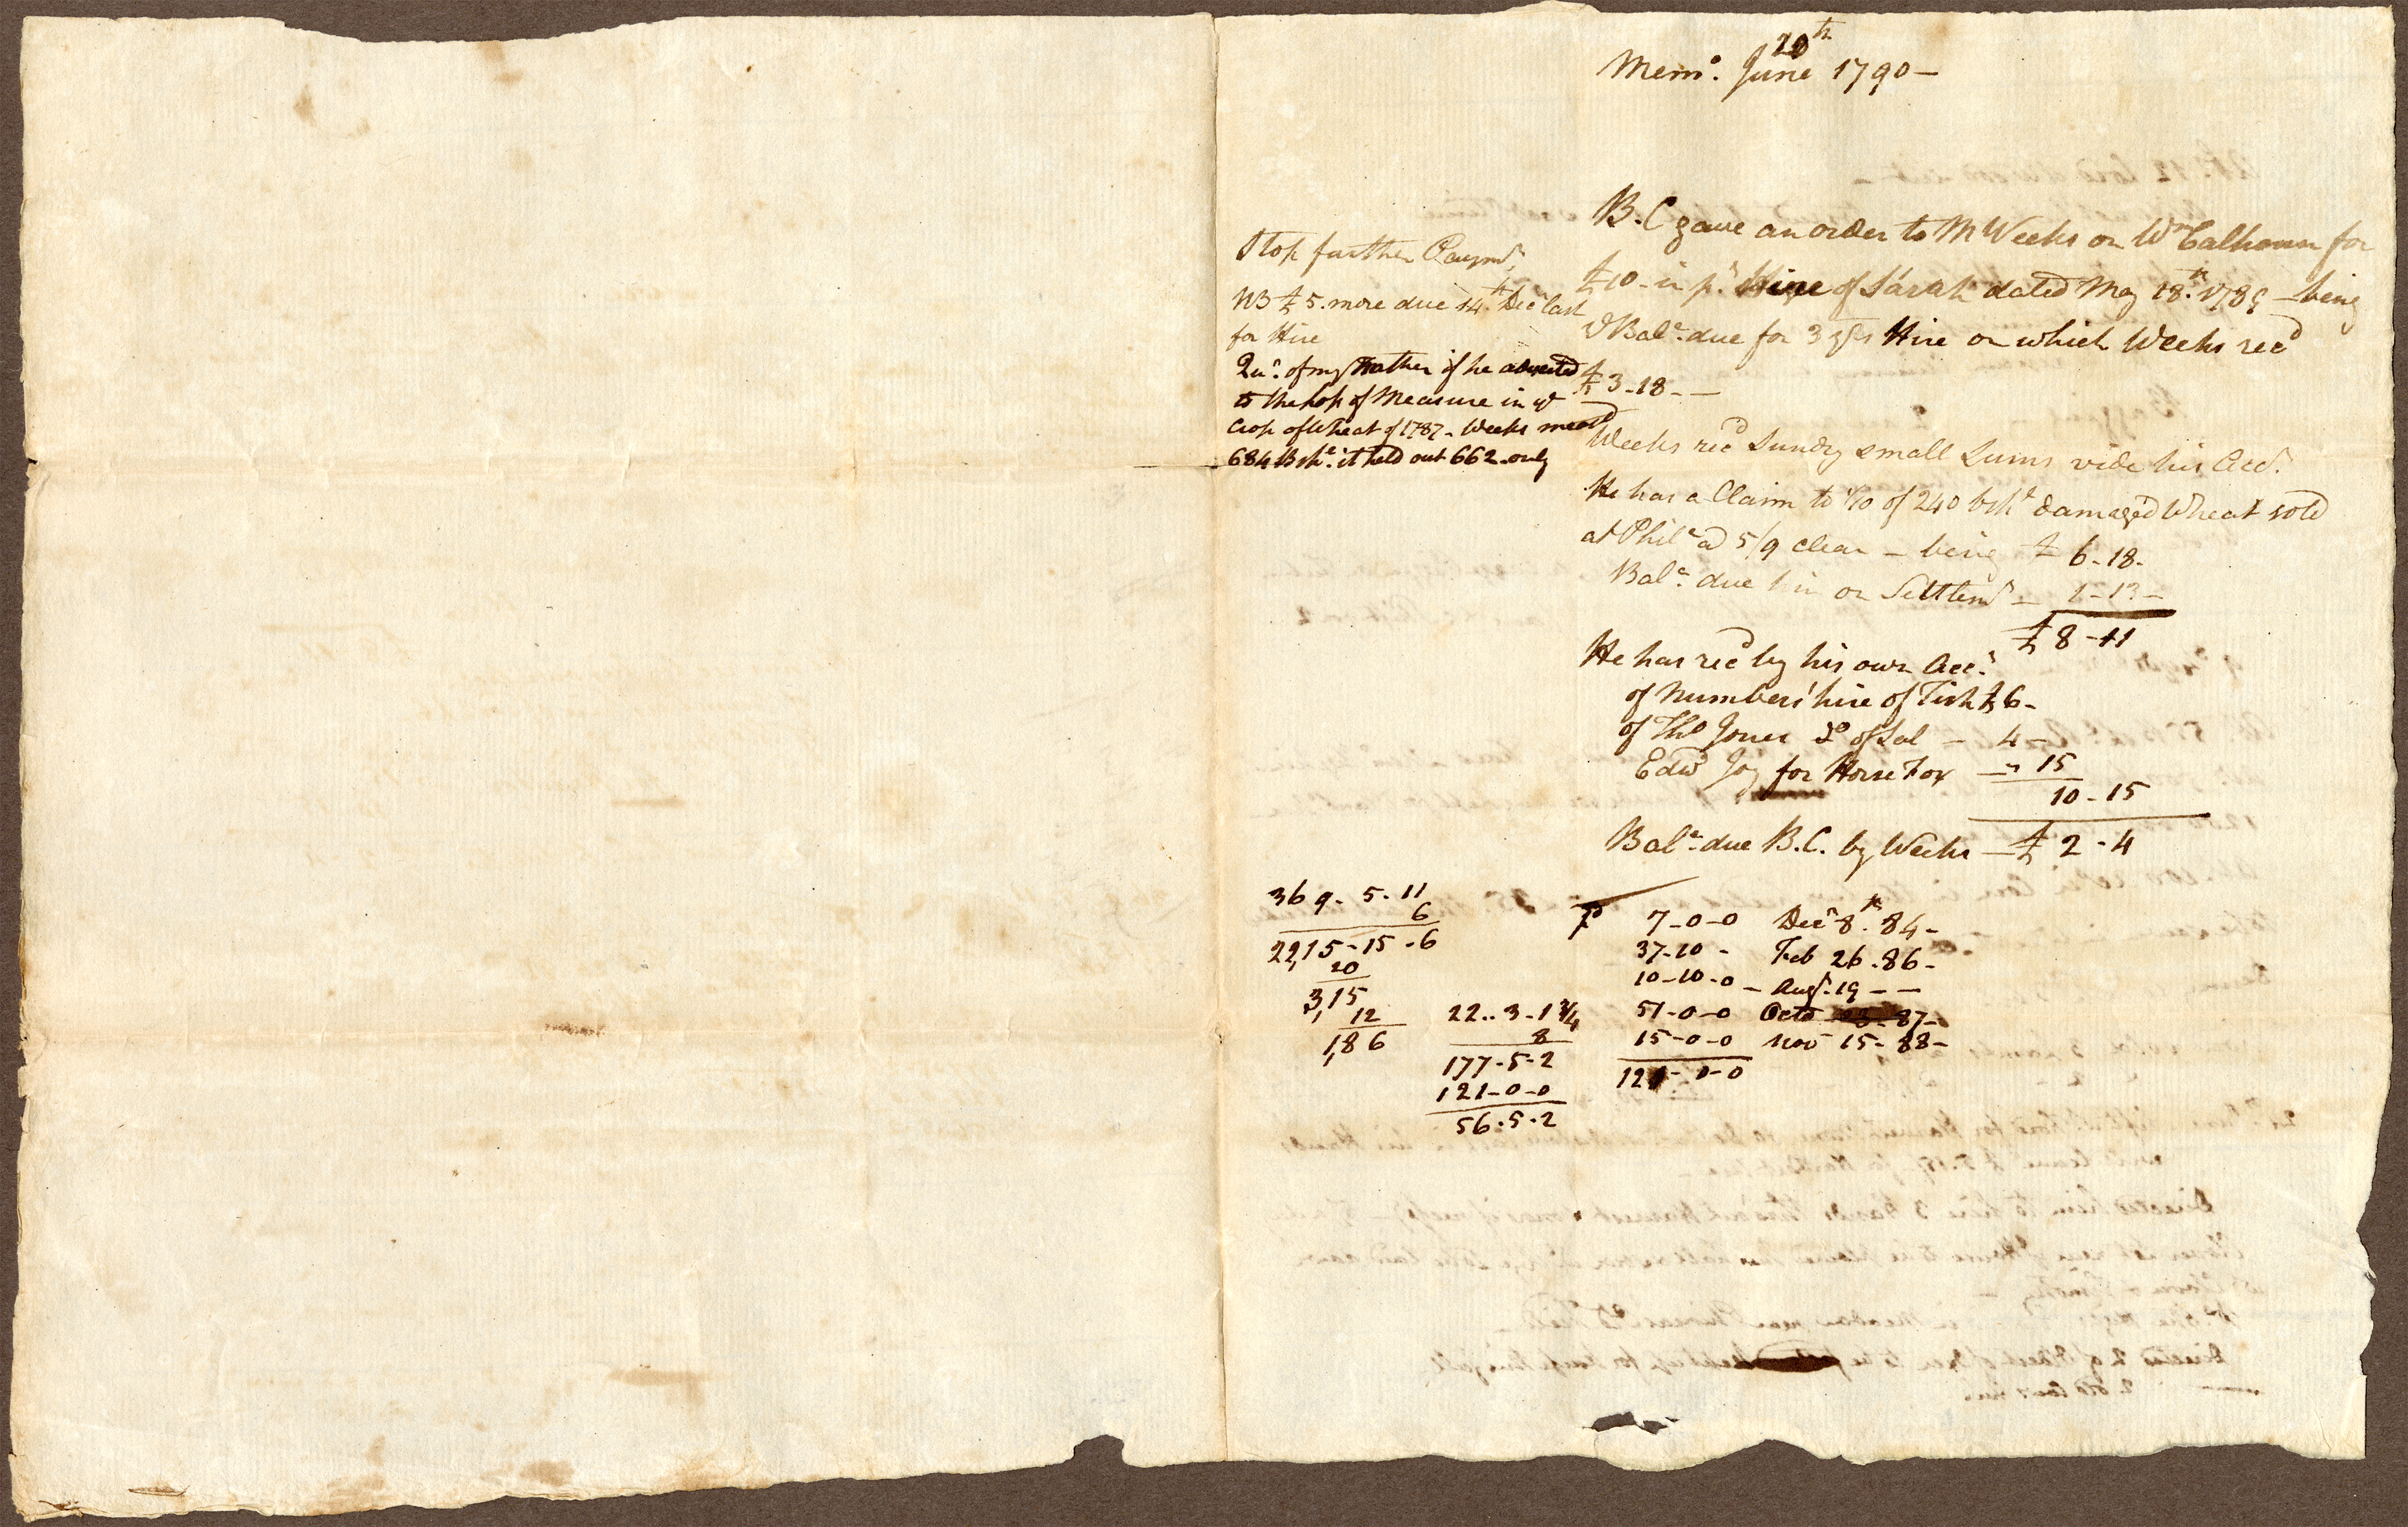 Memo. June 20th 1790 -
B. C gave an order to M Weeks on Wm Calhoun for
£10 - in pt. Hire of Sarah dated May 18th. 1789 - being
ye Bale. due for 3 yrs Hire on which Weeks recd
£3-18- -
Weeks recd Sundry small Sums vide his Acct.
He has a Claim to 1/10 of 240 bshs damaged Wheat sold
at Phila a 5/9 clear - being £ 6-18-
Bale. due him on Settlemt - 1-13-
£8-11
He has recd by his own Acct.
of Numbers' hire of Tish £6-
of Tho Jones Do of Sal - 4 -
Edwd Joy for Horse Fox - " 15
10-15
Bale. due B.C. by Weeks - £ 2-4
Stop further Paymt.
NB £5. more due 14th Decr last
for Hire
Qu. of my Father if he adverted
to the loss of Measure in ye
Crop of Wheat of 1787 - Weeks measd
684 Bshs. it held out 662 only
369. 5. 11
6
22,15-15-6
20
3,15
12
1,86
22.. 3-1 3/4
8
177-5-2
121-0-0
56.5.2
7-0-0 Decr 8th. 84-
37-10 - Feb 26.86-
10-10-0 - Augt. 19 - -
51-0-0 Octo 87-
15-0-0 Nov 15-88-
121-0-0